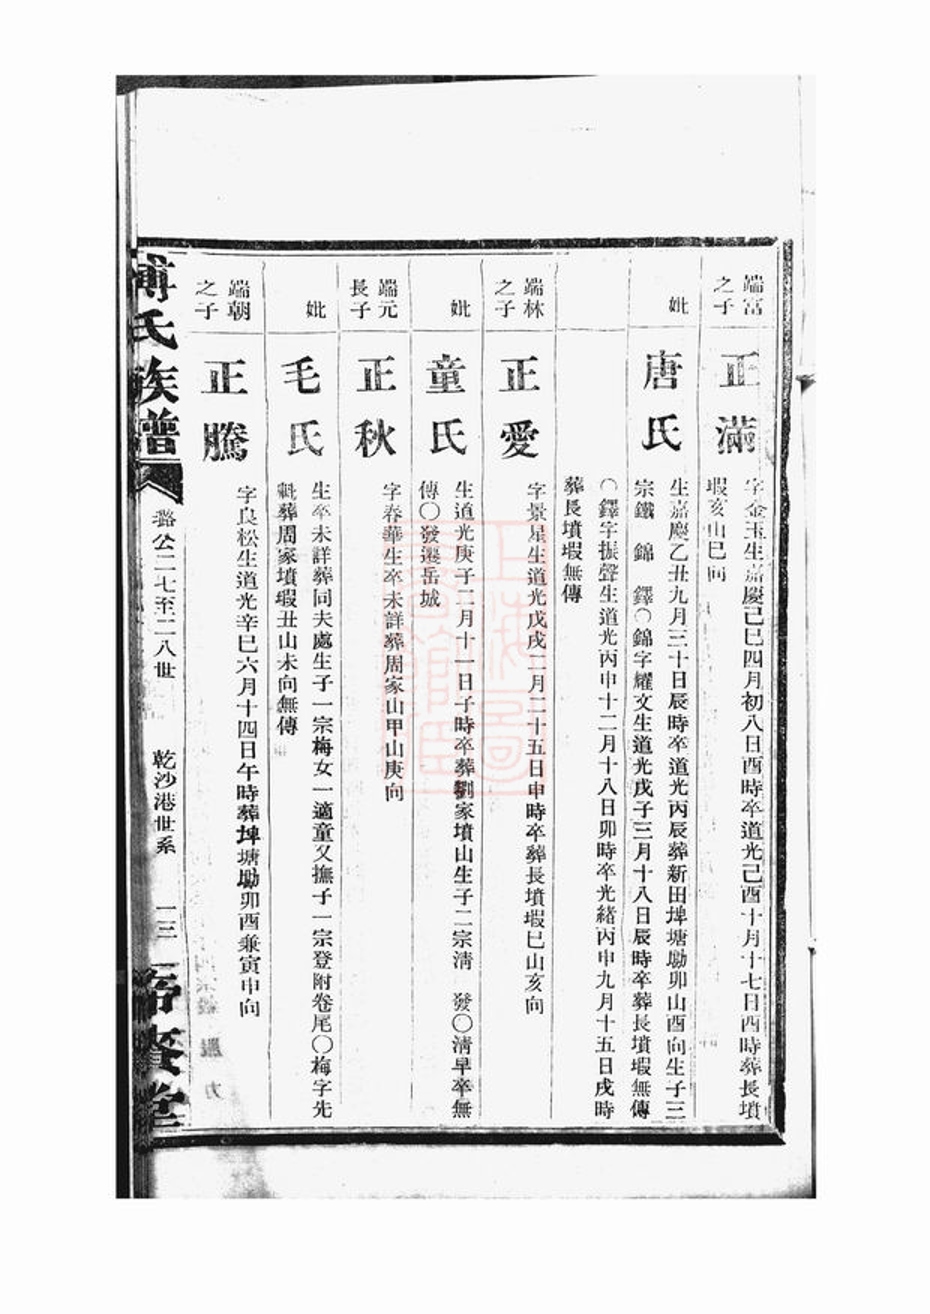 端富
之子
正滿
字金玉生嘉慶己巳四月初八日酉時卒道光己酉十月十七日酉時葬長墳
瑕亥山巳向
妣
唐氏
生嘉慶乙丑九月三十日辰時卒道光丙辰葬新田埤塘勘卯山酉向生子三
宗鐵 錦 鐸〇錦字耀文生道光戊子三月十八日辰時卒葬長墳瑕無傳
〇鐸字振聲生道光丙申十二月十八日卯時卒光緒丙申九月十五日戌時
葬長墳瑕無傳
端林
之子
正愛
字景星生道光戊戌二月二十五日申時卒葬長墳瑕巳山亥向
妣
童氏
生道光庚子二月十一日子時卒葬劉家墳山生子二宗清 發〇清早卒無
傳〇發遷岳城
端元
長子
正秋
字春華生卒未詳葬周家山甲山庚向
妣
毛氏
生卒未詳葬同夫處生子一宗梅女一適童又撫子一宗登附卷尾〇梅字先
葬周家墳瑕丑山未向無傳
端朝
之子
正騰
字良松生道光辛巳六月十四日午時葬埤塘勘卯酉兼寅申向
傅氏族譜
璐公二七至二八世
乾沙港世系
一三
帝賚堂